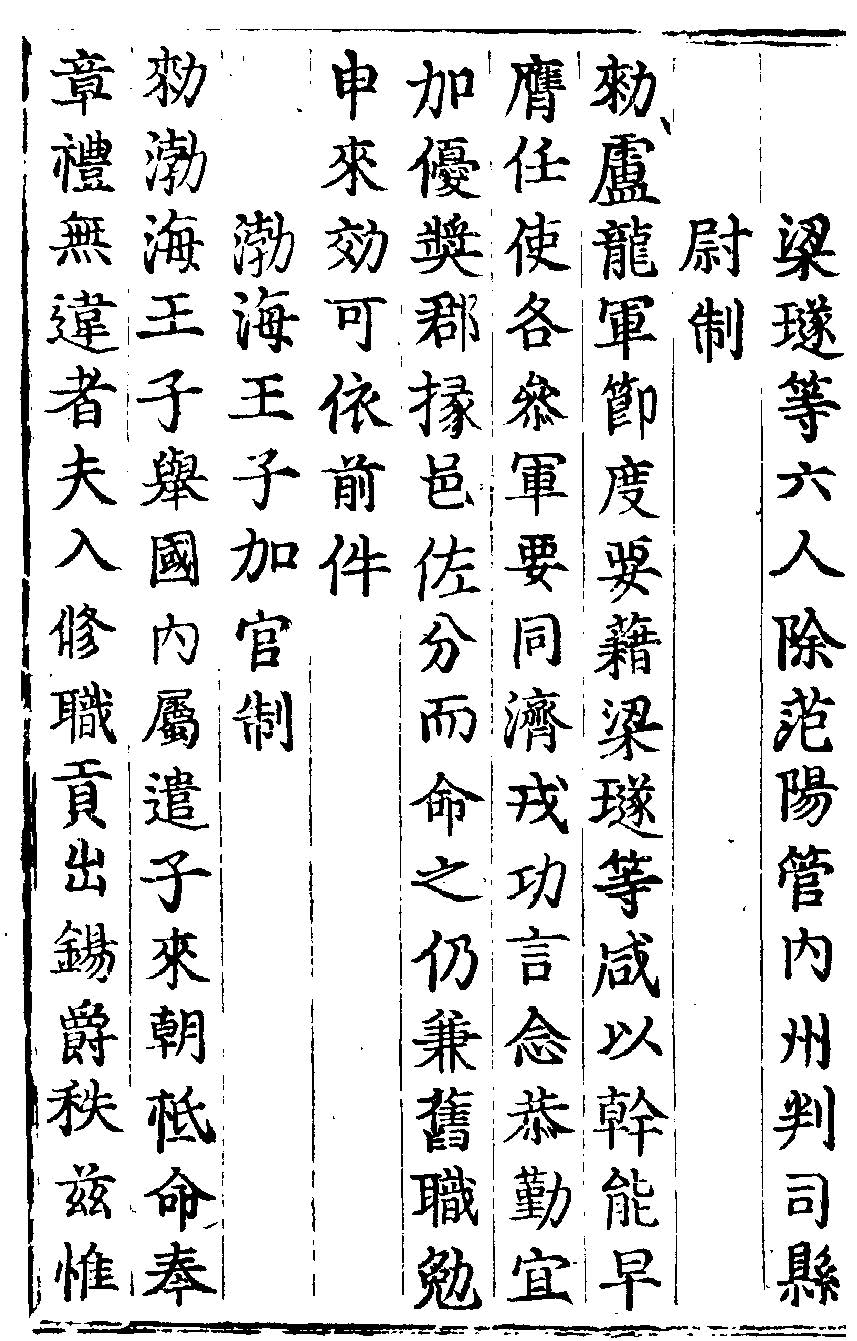 梁璲等六人除范陽管内州判司縣
尉制
勑盧龍軍節度要藉梁璲等咸以幹能早
膺任使各叅軍要同濟戎功言念恭勤宜
加優奬郡掾邑佐分而命之仍兼舊職勉
申來効可依前件
渤海王子加官制
勑渤海王子舉國内屬遣子來朝柢命奉
章禮無違者夫入修職貢出錫爵秩兹惟